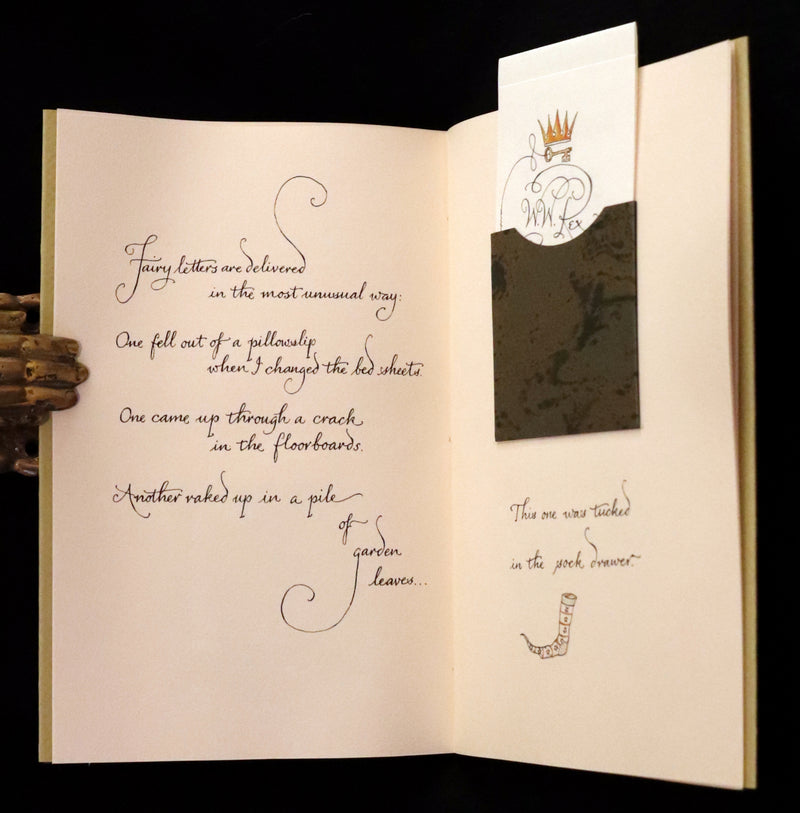 Fairy letters are delivered
in the most unusual way:
One fell out of a pillowslip
when I changed the bed sheets.
One came up through a crack
in the floorboards.
Another raked up in a pile
of
garden
leaves...
W.W. Rex
This one was tucked
in the sock drawer.